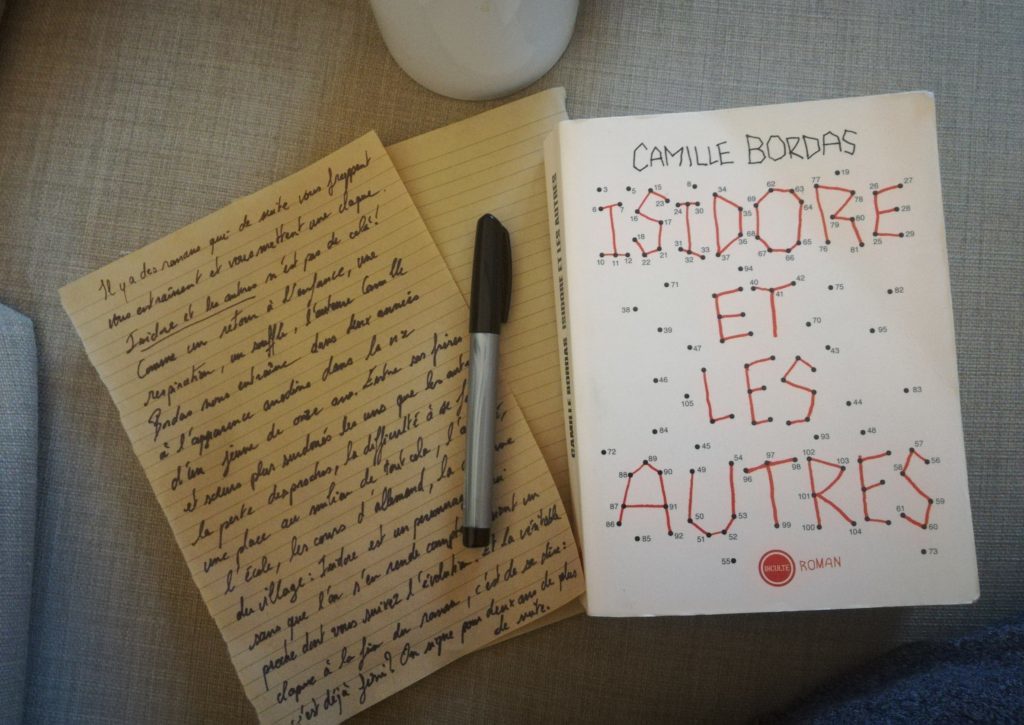 Il y a des romans qui de suite vous frappent
vous entraînent et vous mettent une claque.
Isidore et les autres n'est pas de celà!
Comme un retour à l'enfance, une
respiration, un souffle, l'auteure Camille
Bordas nous entraîne dans deux années
à l'apparence anodine dans la vie
d'un jeune de onze ans. Entre ses frères
et sœurs plus surdoués les uns que les
la perte des proches, la difficulté à se
une place au milieu de tout cela,
l'école, les cours d'allemand, la
du village: Isidore est un personnage
sans que l'on s'en rende compte un
proche dont vous suivez l'évolution. Et la véritable
claque à la fin du roman, c'est de se dire:
c'est déjà fini? On signe pour deux ans de plus
de suite.
CAMILLE BORDAS ISIDORE ET LES AUTRES
CAMILLE BORDAS
3 5 15 8 34 62 63 77 19 26 27
6 7 16 23 24 30 35 69 64 78 28
ISIDORE
18 17 31 36 68 65 79 80 29
10 11 12 22 21 32 33 37 67 66 76 81 25
94
71 40 41 42 75 82
ET
38 39 70 95
47 43
LES
46 105 44 83
84 45 93 48
72 88 89 90 49 54 96 97 98 102 103 58 57 56
AUTRES
87 91 50 53 101 59
86 85 92 51 52 99 100 104 61 60
55 73
INCULTE
ROMAN